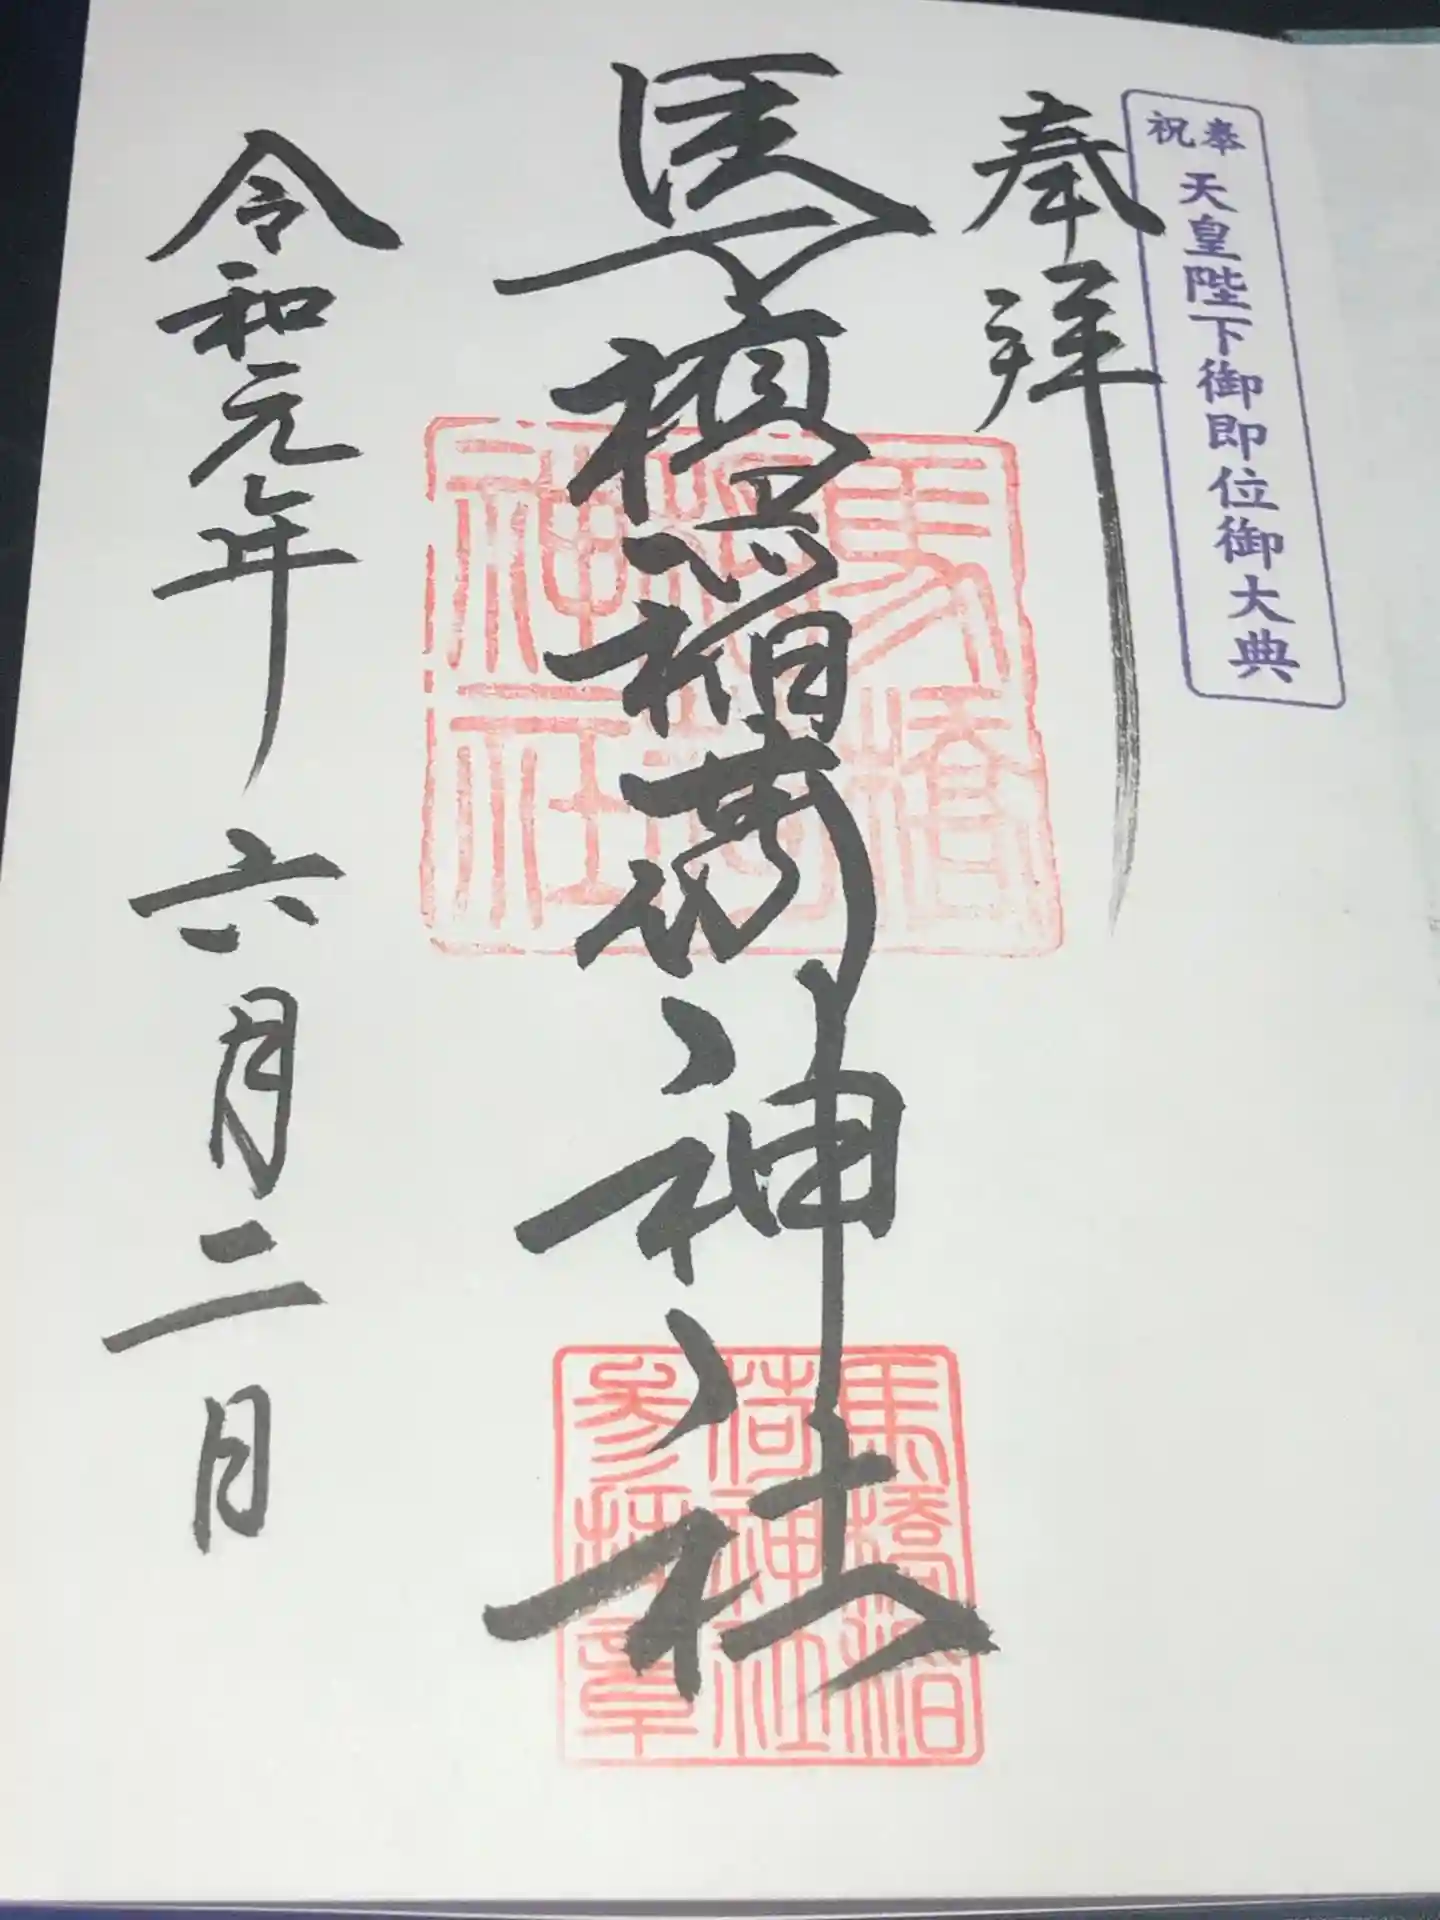 奉祝
天皇陛下御即位御大典
奉拝
馬橋稲荷神社
令和元年 六月二日
馬橋稲荷神社
馬橋稲荷神社参拝章